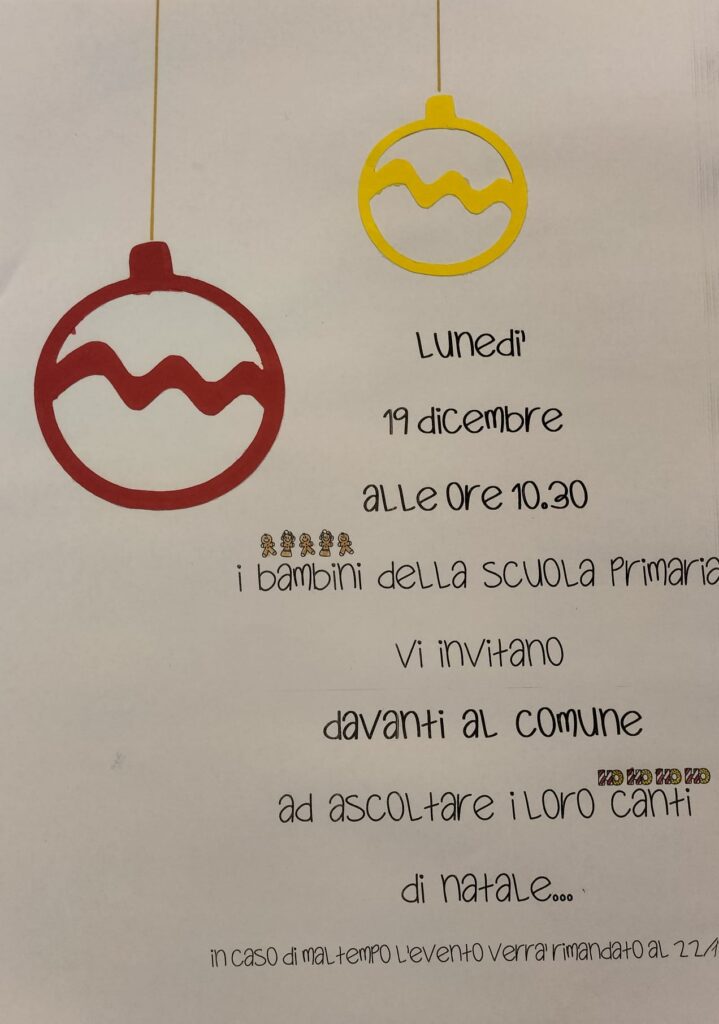 Lunedi'
19 dicembre
alle ore 10.30
i bambini della scuola primaria
vi invitano
davanti al comune
ad ascoltare i loro canti
di natale...
in caso di maltempo l'evento verra' rimandato al